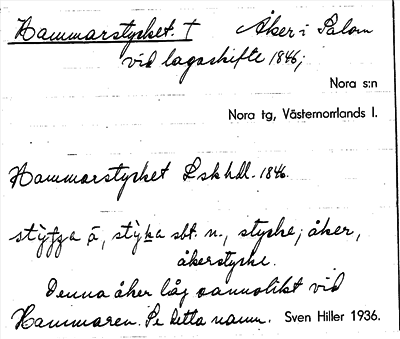 Hammarstycket. † Åker i Salom
vid lagaskifte 1846;
Nora s:n
Nora tg, Västernorrlands l.
Hammarstycket Lskhdl. 1846.
sbt. n., stycke, åker,
åkerstycke.
Denna åker låg sannolikt vid
Hammaren. Se detta namn. Sven Hiller 1936.